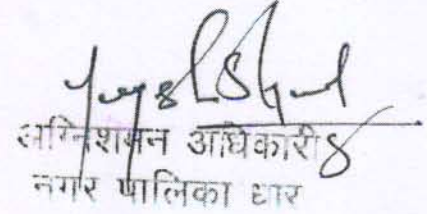 अग्निशमन अधिकारी
नगर पालिका धार